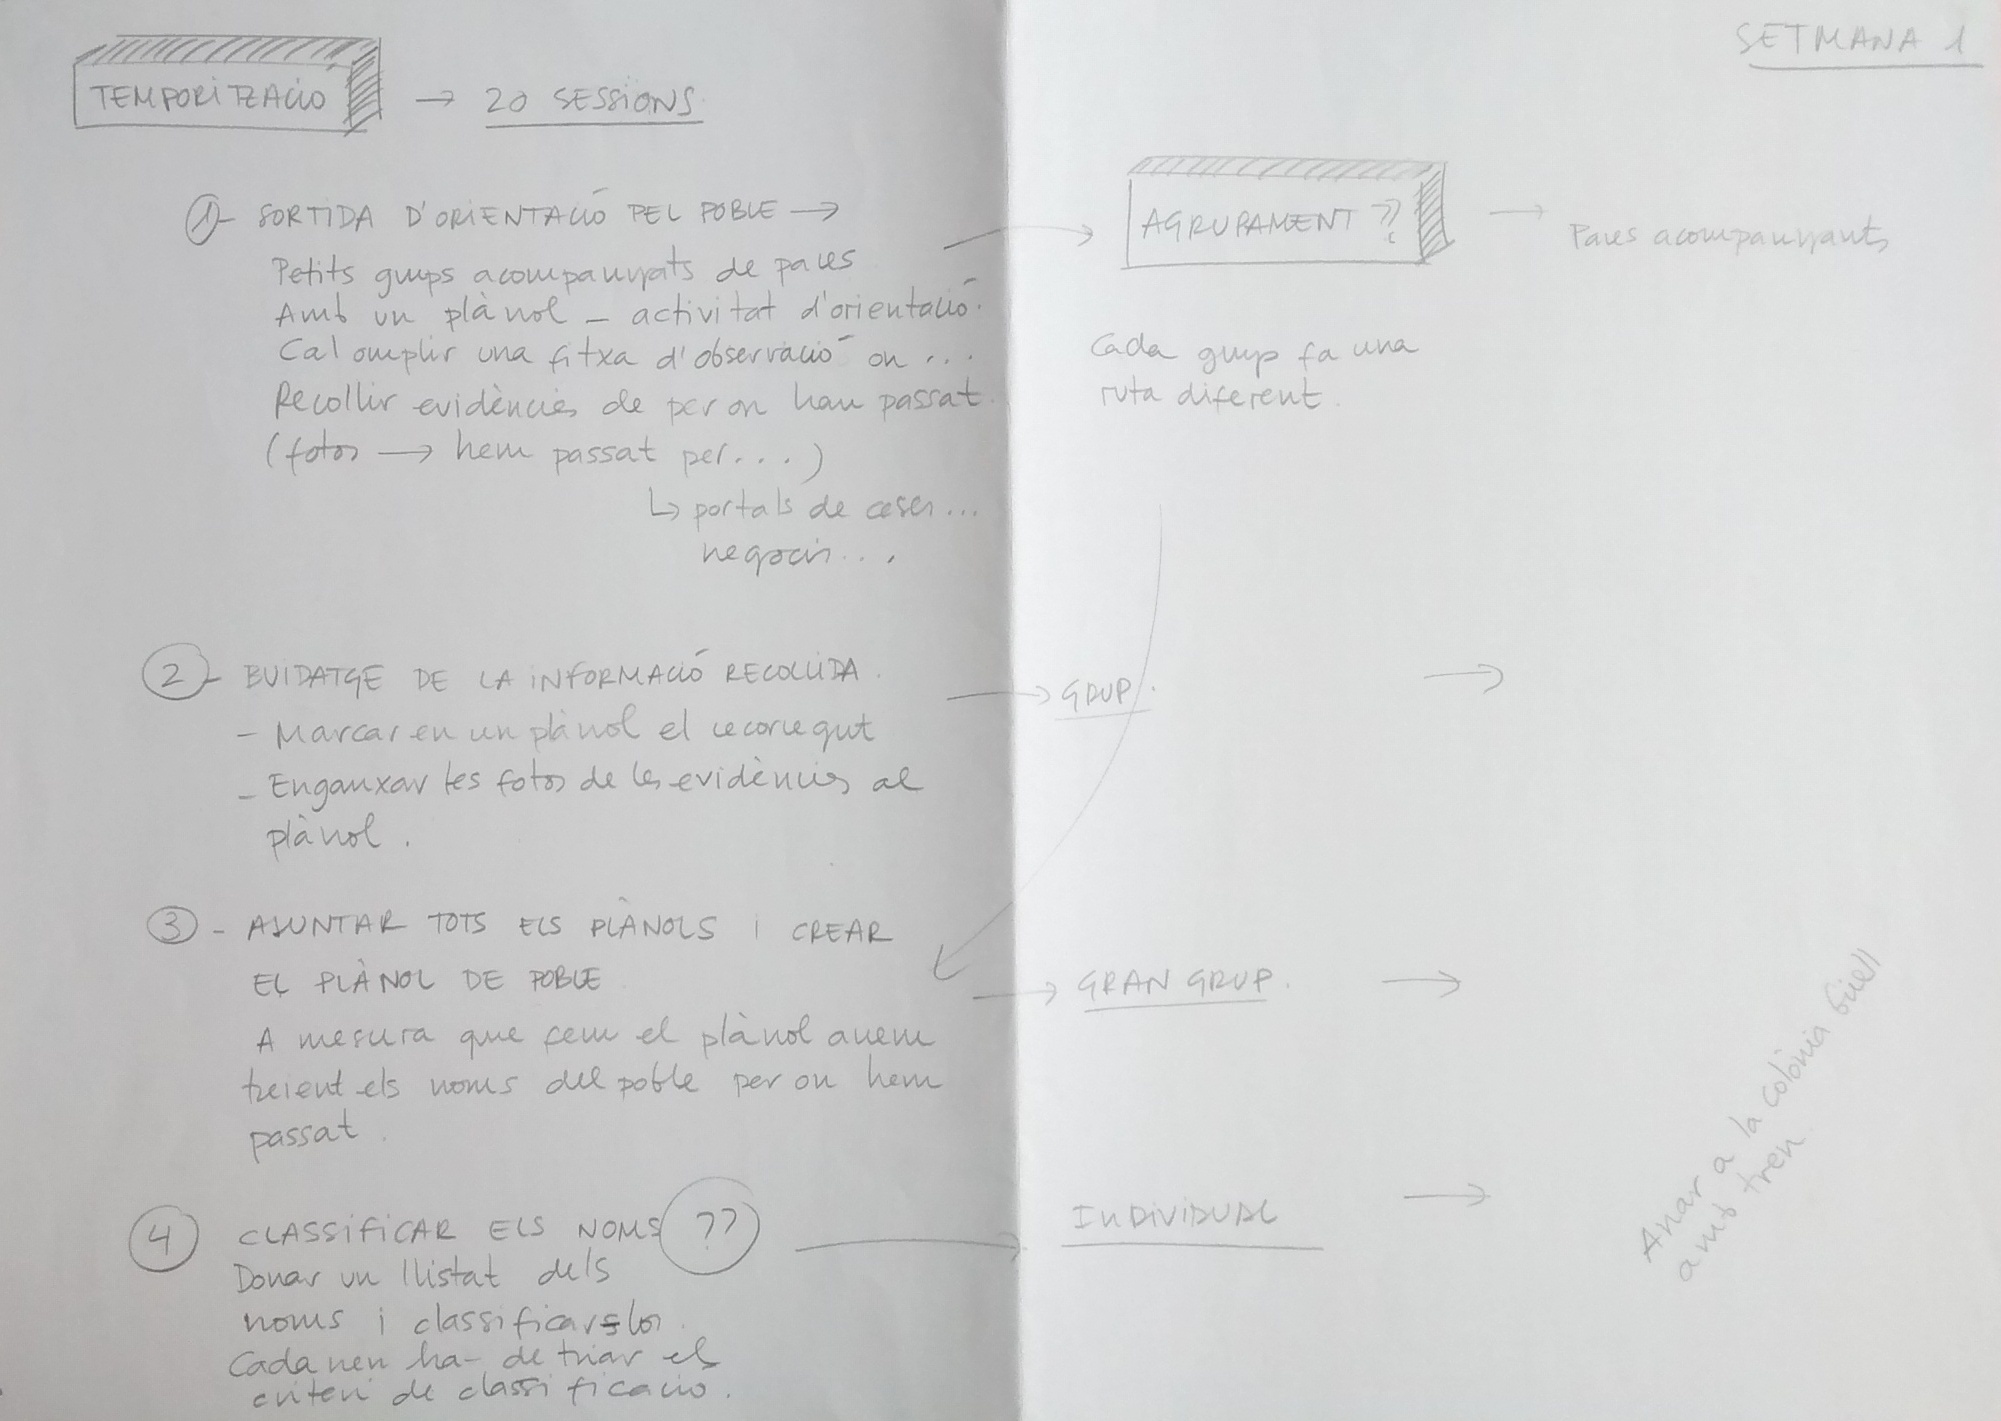 SETMANA 1
TEMPORITZACIÓ → 20 SESSIONS.
1- SORTIDA D'ORIENTACIÓ PEL POBLE →
Petits grups acompanyats de pares
Amb un plànol - activitat d'orientació.
Cal omplir una fitxa d'observació on ...
Recollir evidències de per on han passat.
(fotos → hem passat per...)
↳ portals de cases...
negocis...
AGRUPAMENT ?? → Pares acompanyants
Cada grup fa una
ruta diferent.
2- BUIDATGE DE LA INFORMACIÓ RECOLLIDA.
- Marcar en un plànol el recorregut
- Enganxar les fotos de les evidències al
plànol.
→ GRUP. →
3- AJUNTAR TOTS ELS PLÀNOLS I CREAR
EL PLÀNOL DE POBLE
A mesura que fem el plànol anem
treient els noms del poble per on hem
passat.
→ GRAN GRUP. →
4 CLASSIFICAR ELS NOMS ??
Donar un llistat dels
noms i classificar-los.
Cada nen ha de triar el
criteri de classificació.
→ INDIVIDUAL →
Anar a la colònia Güell
amb tren